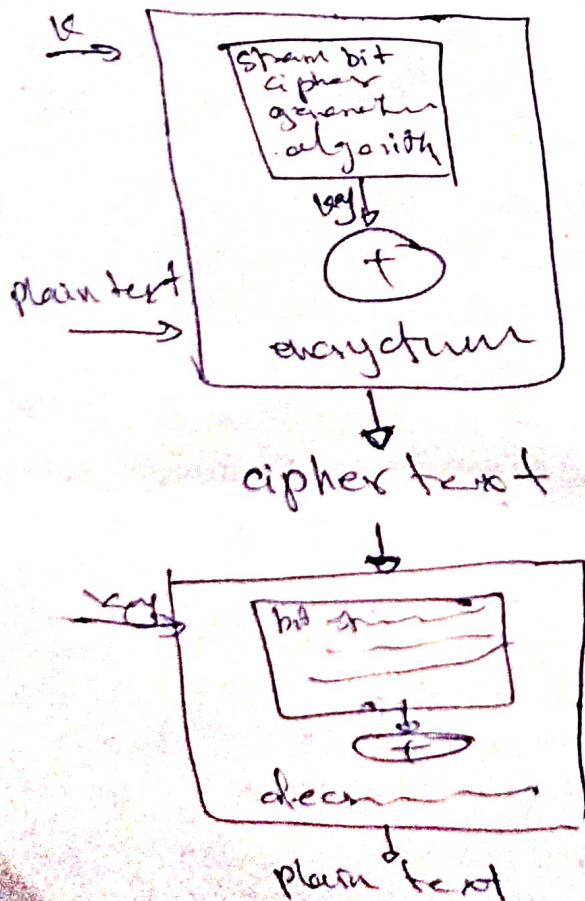 K
stream bit
cipher
generatur
algorith
key
+
plain text
encryctium
cipher text
key
bit st
+
decr
plain text